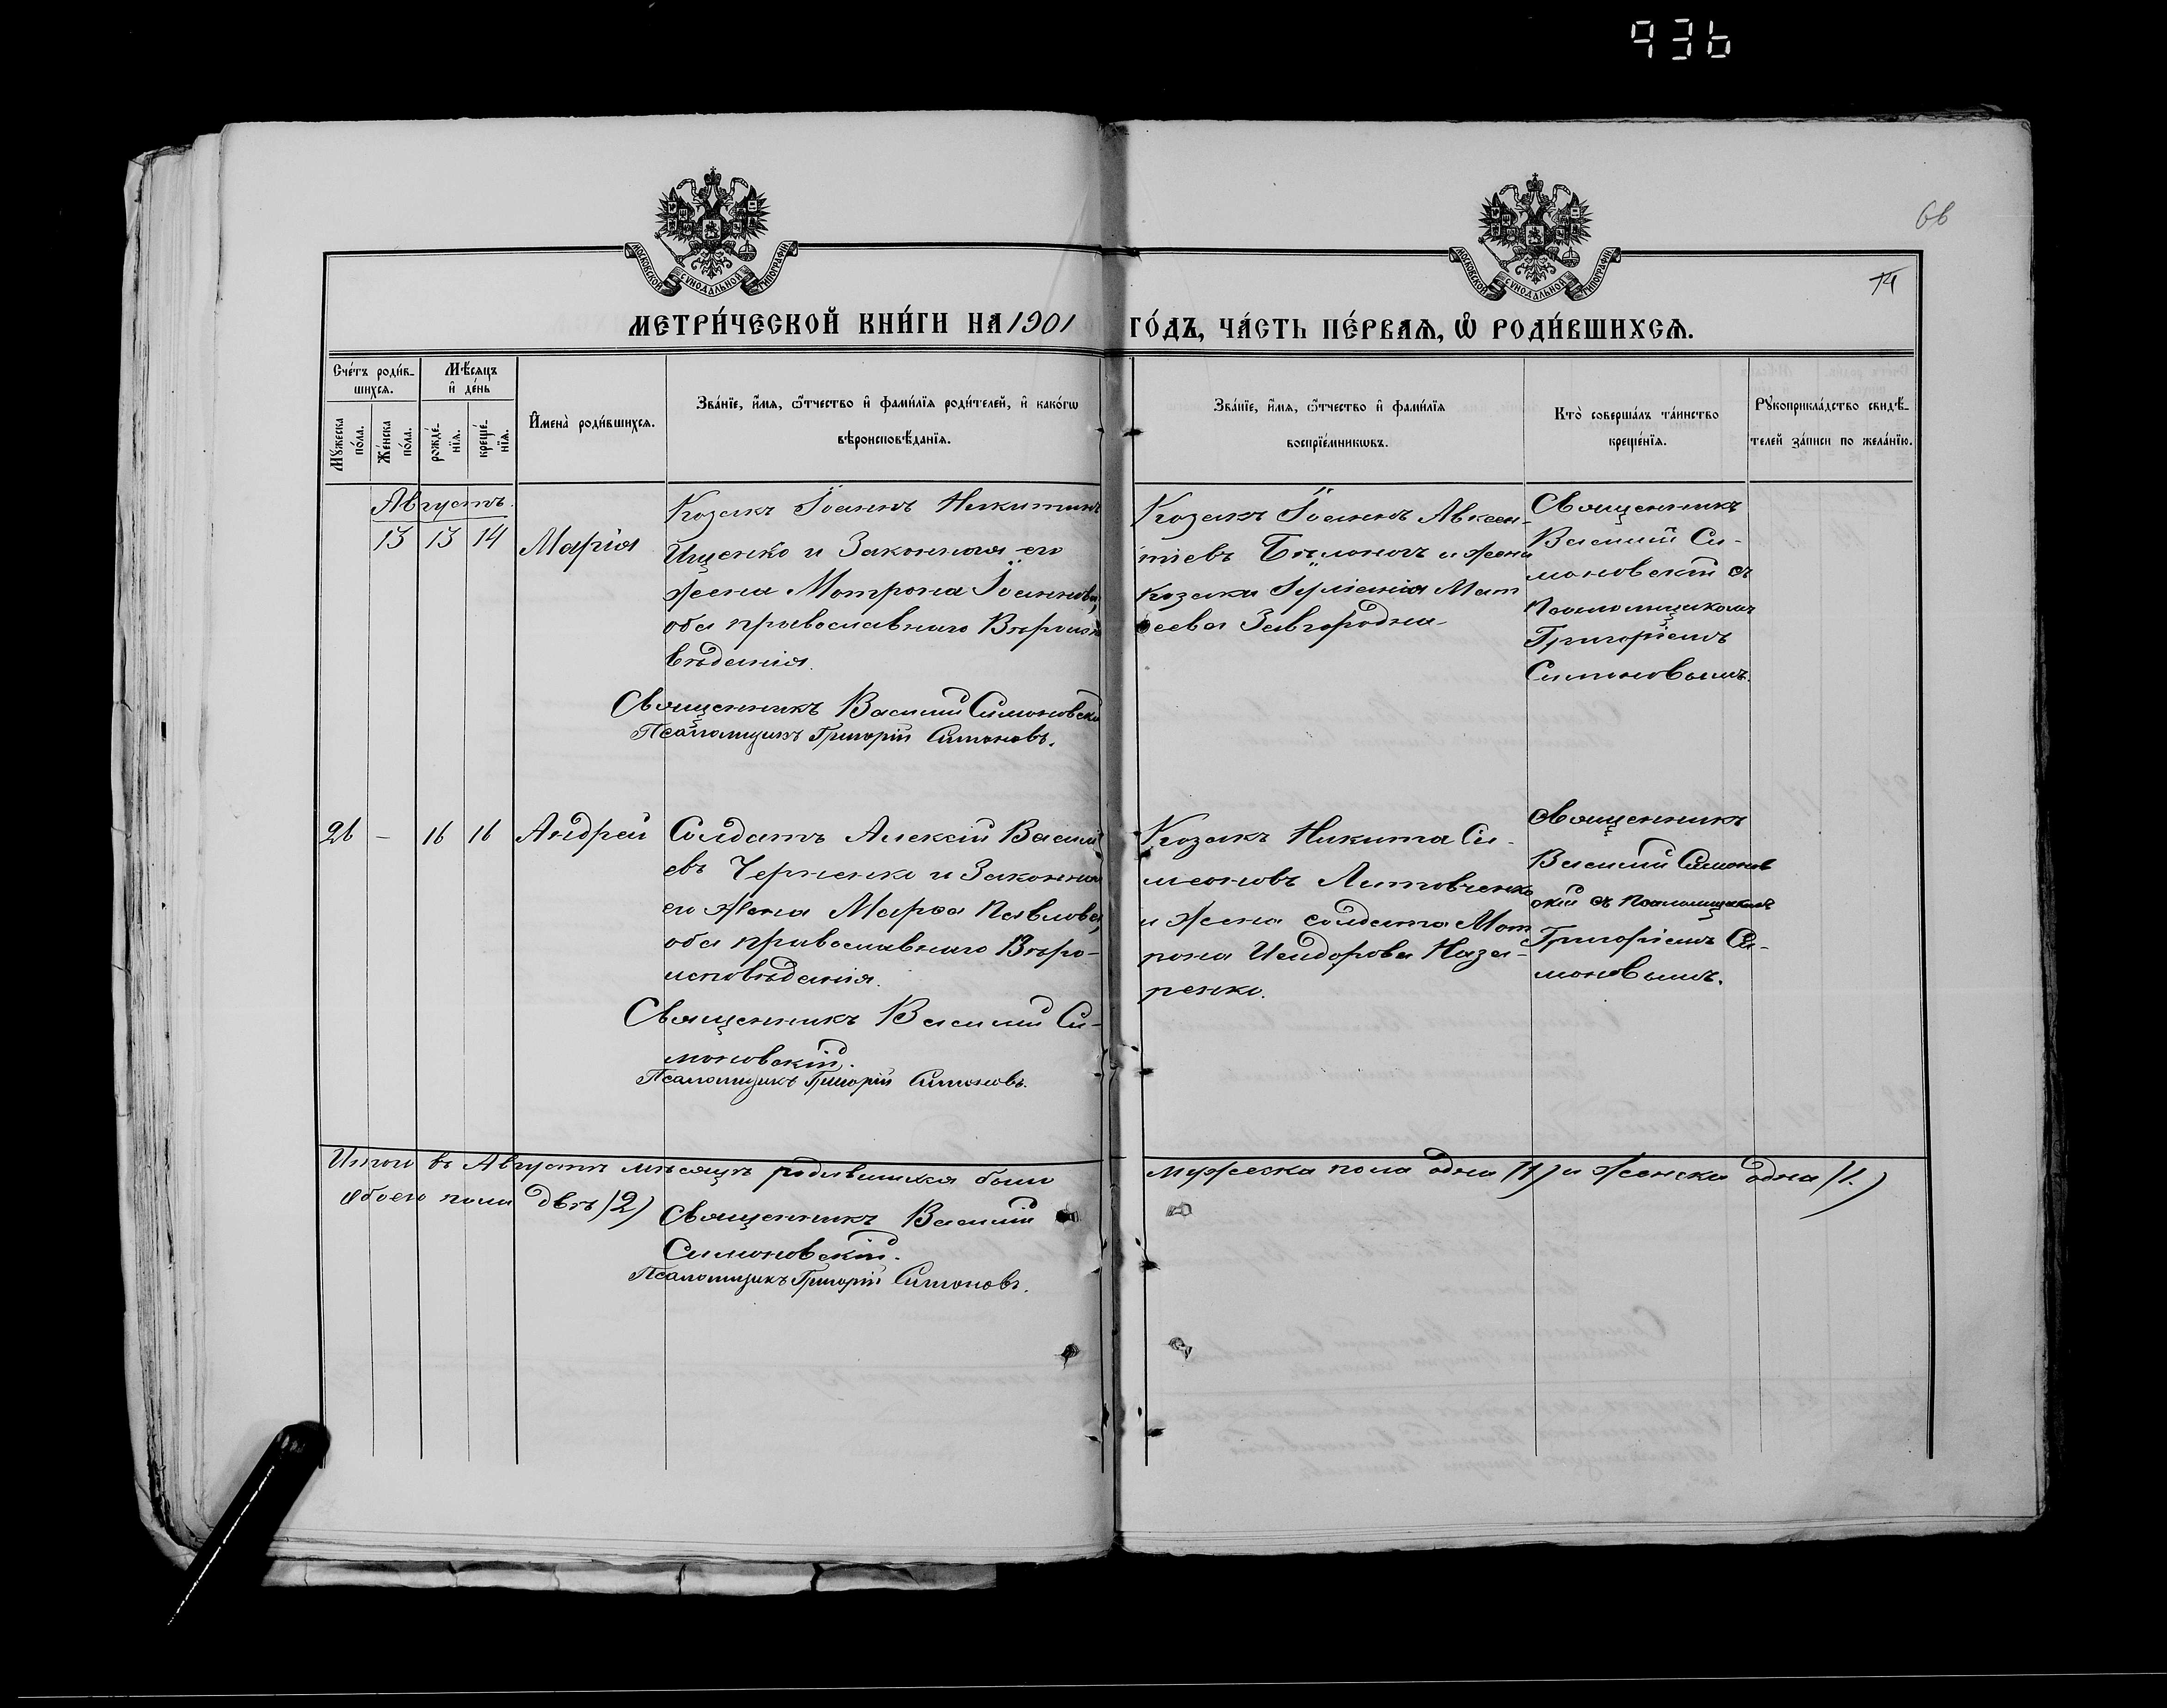 936
66
74
МОСКОВСКОЙ СУНОДАЛЬНОЙ ТИПОГРАФІИ
МОСКОВСКОЙ СУНОДАЛЬНОЙ ТИПОГРАФІИ
МЕТРИ́ЧЕСКОЙ КНИ́ГИ НА 1901 ГО́ДЪ, ЧА́СТЬ ПЕ́РВАѦ, Ѡ҆ РОДИ́ВШИХСѦ.
Сче́тъ роди́в-
шихсѧ.
Мꙋ́жеска по́ла.
Же́нска по́ла.
Мѣ́сѧцъ
и҆ де́нь
рожде́-
нїѧ.
креще́-
нїѧ.
И҆мена̀ роди́вшихсѧ.
Зва́нїе, и҆́мѧ, ѻ҆́тчество и҆ фами́лїѧ роди́телей, и҆ како́гѡ
вѣроисповѣ́данїѧ.
Зва́нїе, и҆́мѧ, ѻ҆́тчество и҆ фами́лїѧ
воспрїе́мникѡвъ.
Кто̀ соверша́лъ та́инство
креще́нїѧ.
Рꙋкоприкла́дство свидѣ́-
телей за́писи по жела́нїю.
Августъ.
13 13 14 Марія
Козакъ Іоаннъ Никитинъ
Ищенко и законная его
жена Матрона Іоаннова,
оба православнаго Вѣроиспо
вѣданія.
Священникъ Василій Симоновскій
Псаломщикъ Григорій Симоновъ.
Козакъ Іоаннъ Авксен-
тіевъ Бѣлоногъ и жена
козака Мат
ѳеева Завгородна
Священникъ
Василій Си-
моновскій съ
Псаломщикомъ
Григоріемъ
Симоновымъ.
26 - 16 16 Андрей
Солдатъ Алексій Васильевъ
евъ Черненко и Законная
его жена Марѳа Павлова,
оба православнаго Вѣро-
исповѣданія.
Священникъ Василій Си-
моновскій.
Псаломщикъ Григорій Симоновъ.
Козакъ Никита Си-
меоновъ Литовченко
и жена солдата Мат
рона Исидорова Наза-
ренко.
Священникъ
Василій Симонов
скій съ Псаломщикомъ
Григоріемъ Си-
моновымъ.
Итого въ Августѣ мѣсяцѣ родившихся было мужеска пола одна (1) и женска одна (1.)
обоего пола двѣ (2)
Священникъ Василій
Симоновскій.
Псаломщикъ Григорій Симоновъ.